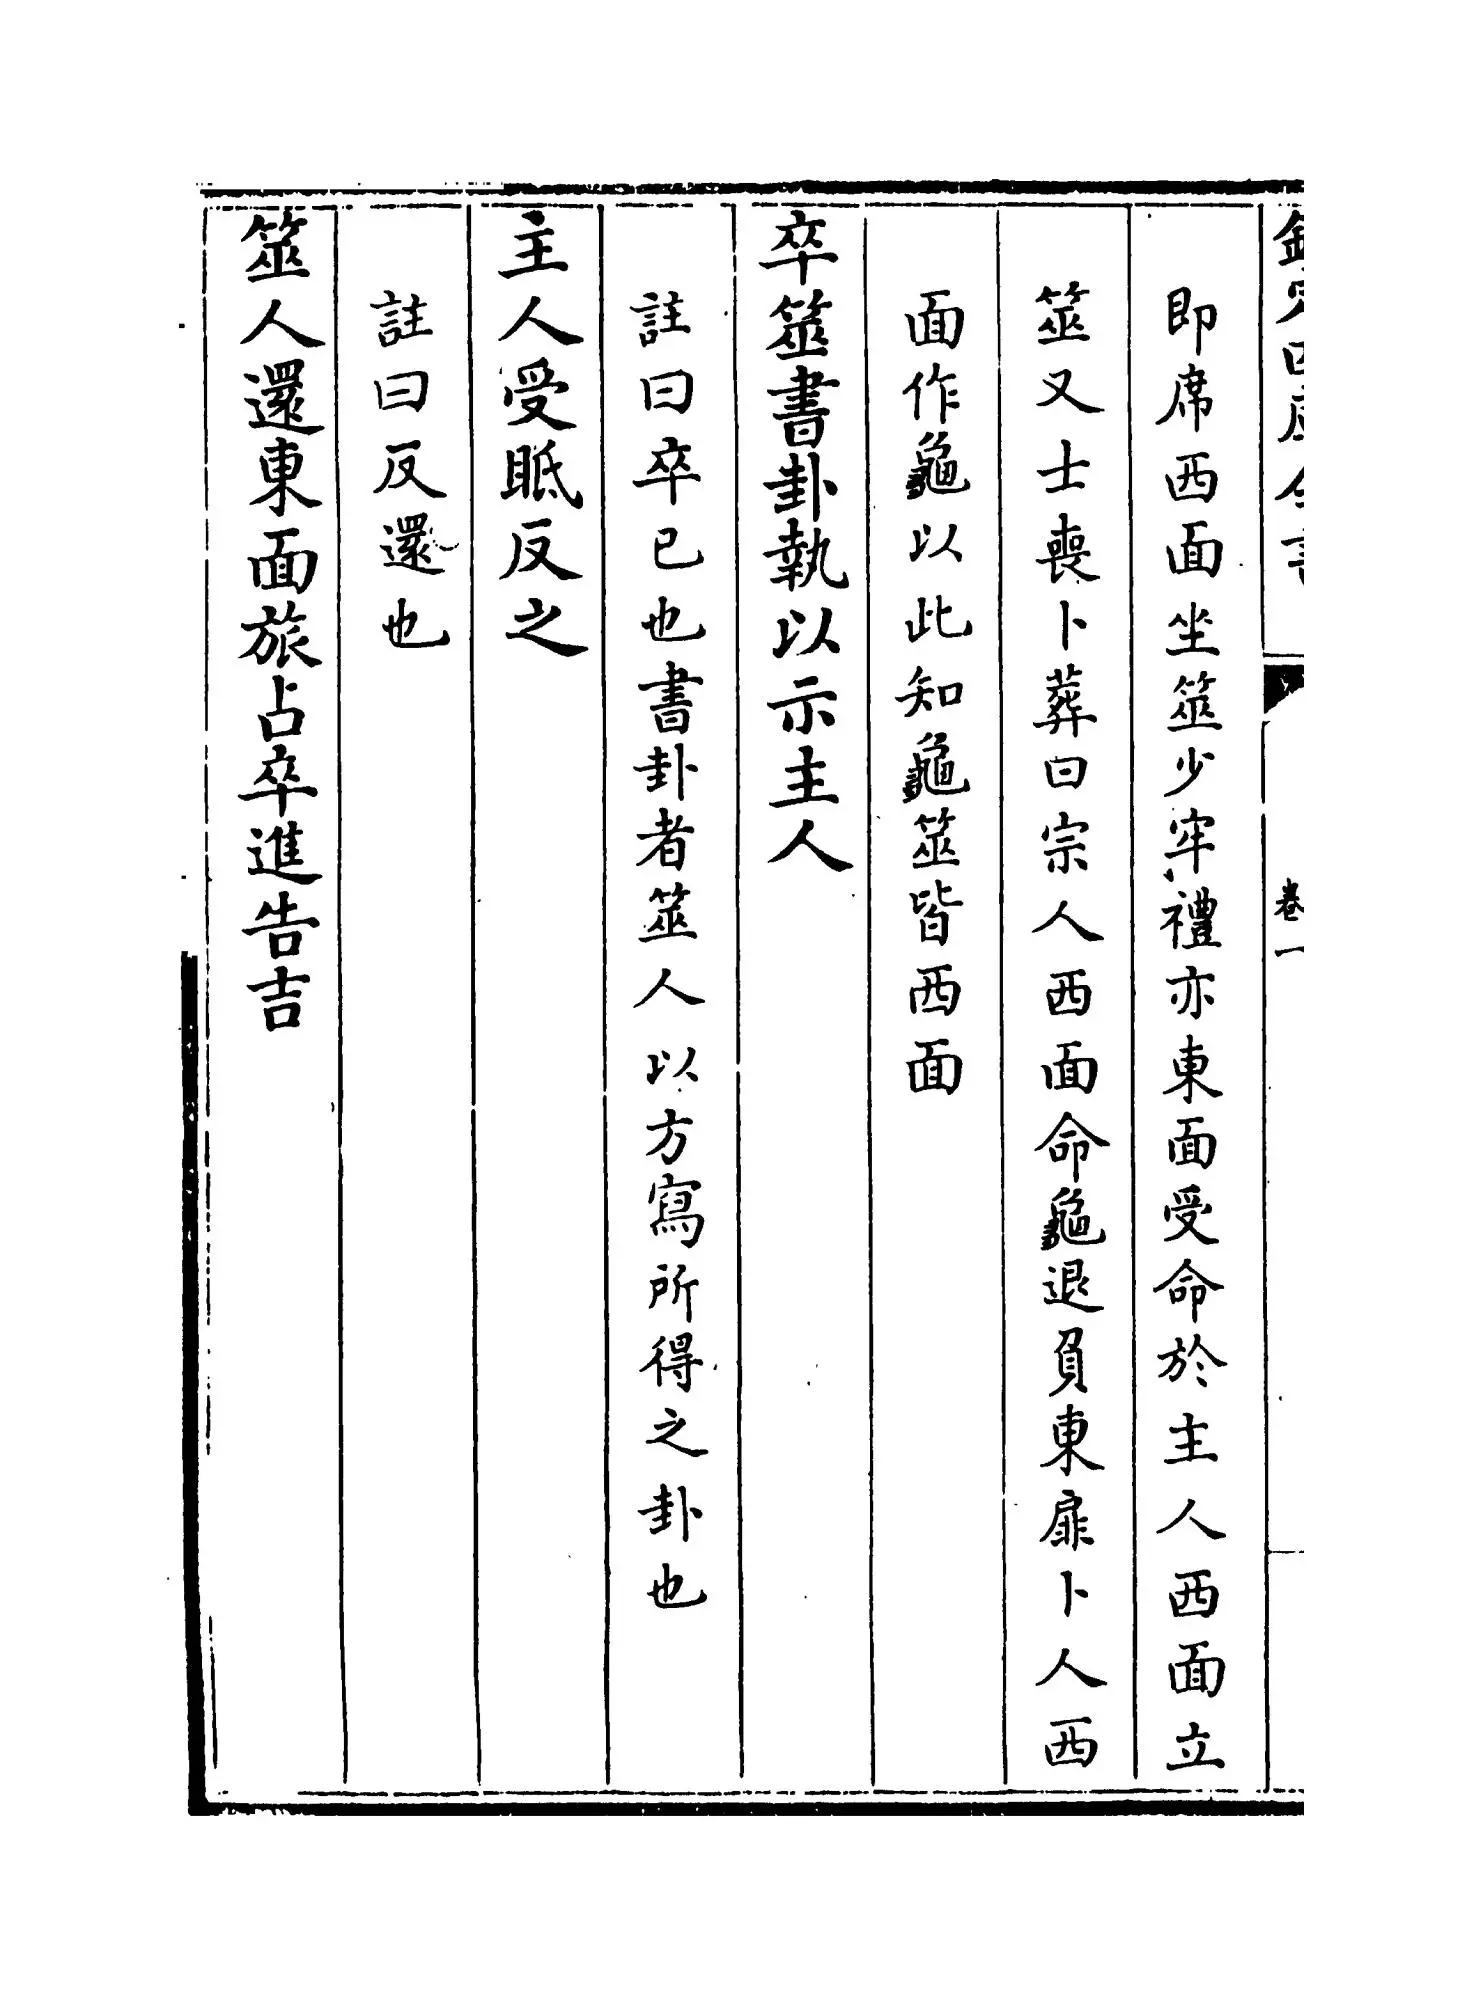 欽定四庫全書
卷一
即席西面坐筮少牢禮亦東面受命於主人西面立
筮又士喪卜葬曰宗人西面命龜退負東扉卜人西
面作龜以此知龜筮皆西面
卒筮書卦執以示主人
註曰卒已也書卦者筮人以方寫所得之卦也
主人受眡反之
註曰反還也
筮人還東面旅占卒進告吉